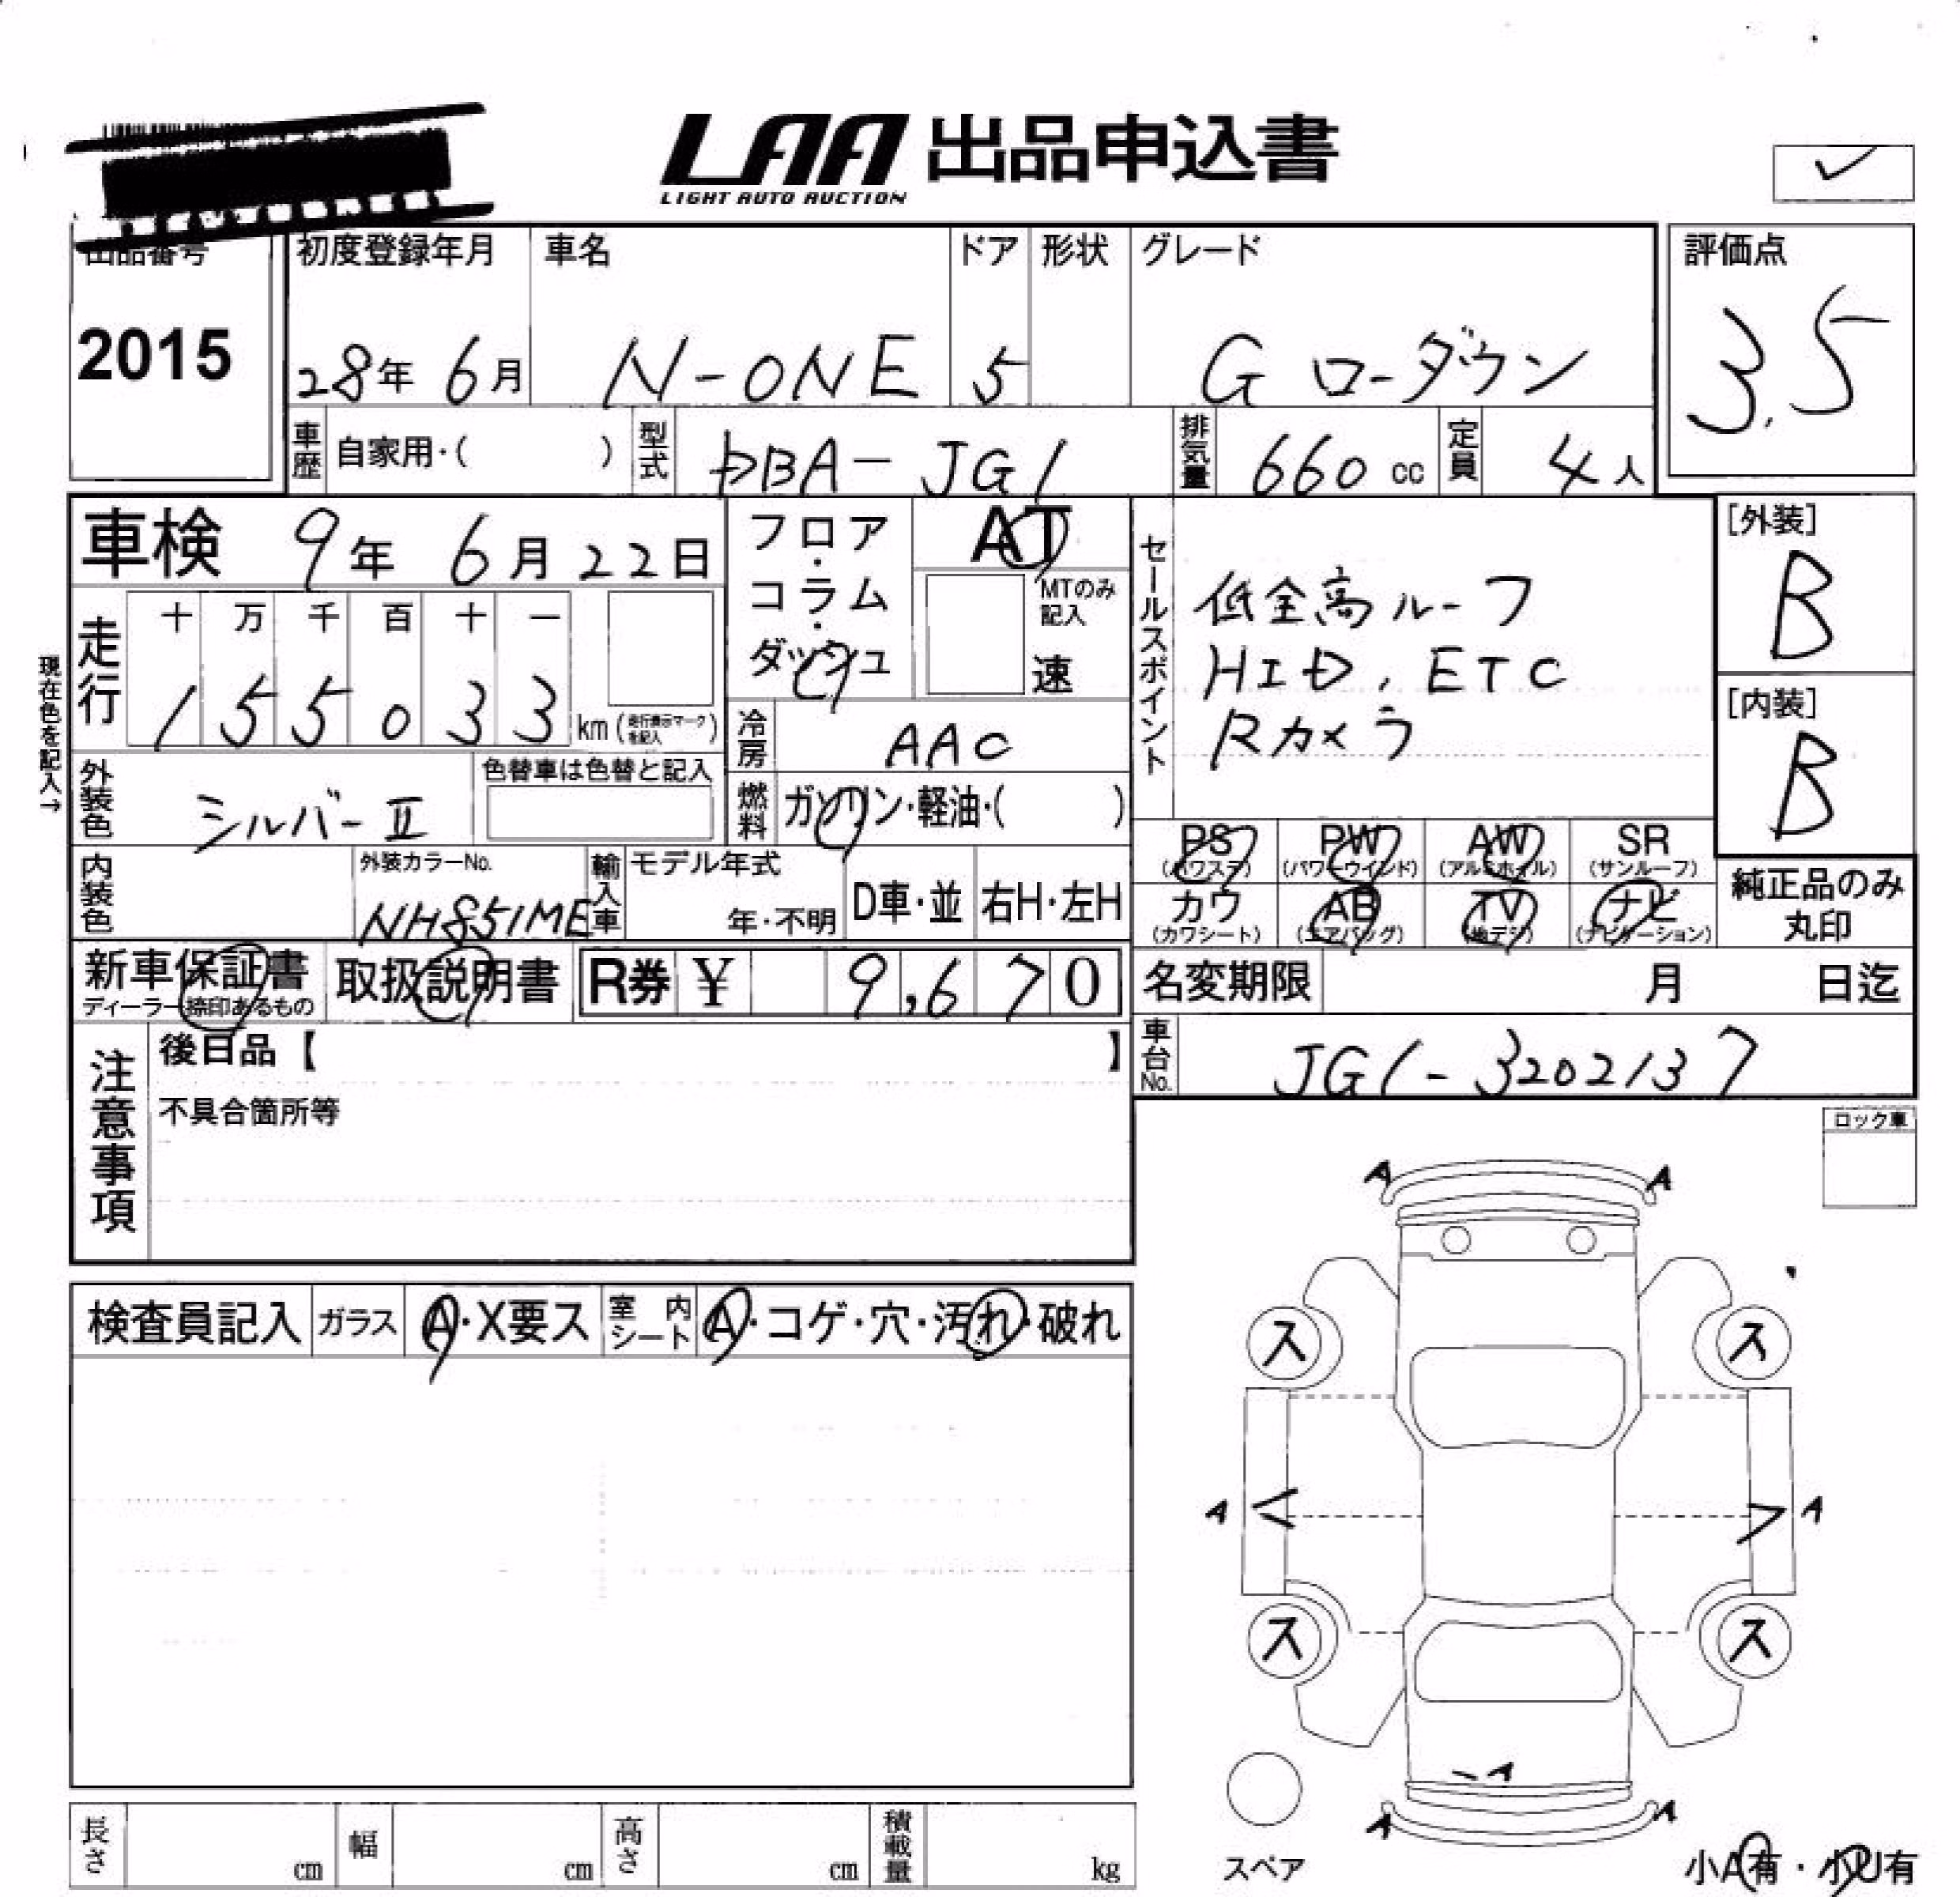 LAA 出品申込書
LIGHT AUTO AUCTION
出品番号
2015
初度登録年月
28年 6月
車名
N-ONE
ドア
5
形状
グレード
G ローダウン
評価点
3.5
車歴 自家用・( )
型式 DBA-JG1
排気量 660 cc
定員 4人
車検 9年 6月 22日
フロア・コラム・ダッシュ
AT
MTのみ記入
速
セールスポイント
低全高ルーフ
HID, ETC
Rカメラ
[外装]
B
[内装]
B
現在色を記入→
走行
十 万 千 百 十 一
1 5 5 0 3 3 km (走行表示マークを記入)
冷房 AAC
外装色 シルバーⅡ
色替車は色替と記入
燃料 ガソリン・軽油・( )
PS (パワステ)
PW (パワーウインド)
AW (アルミホイル)
SR (サンルーフ)
カワ (カワシート)
AB (エアバッグ)
TV (地デジ)
ナビ (ナビゲーション)
純正品のみ丸印
内装色
外装カラーNo.
NH851ME
輸入車
モデル年式
年・不明
D車・並
右H・左H
新車保証書
ディーラー捺印あるもの
取扱説明書
R券 ¥ 9,670
名変期限 月 日迄
車台No. JG1-3202137
注意事項
後日品【 】
不具合箇所等
ロック車
検査員記入
ガラス A・X要ス
室内シート A・コゲ・穴・汚れ・破れ
A A
ス ス
A A
ス ス
A
A A
スペア
小A有・小U有
長さ cm
幅 cm
高さ cm
積載量 kg